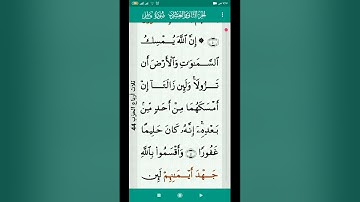 ۞ إِنَّ ٱللَّهَ يُمْسِكُ
ٱلسَّمَٰوَٰتِ وَٱلْأَرْضَ أَن
تَزُولَا ۚ وَلَئِن زَالَتَآ إِنْ
أَمْسَكَهُمَا مِنْ أَحَدٍ مِّنۢ
بَعْدِهِۦٓ ۚ إِنَّهُۥ كَانَ حَلِيمًا
غَفُورًا ۝ وَأَقْسَمُوا۟ بِٱللَّهِ
جَهْدَ أَيْمَٰنِهِمْ لَئِن
ثلاث أرباع الحزب 44